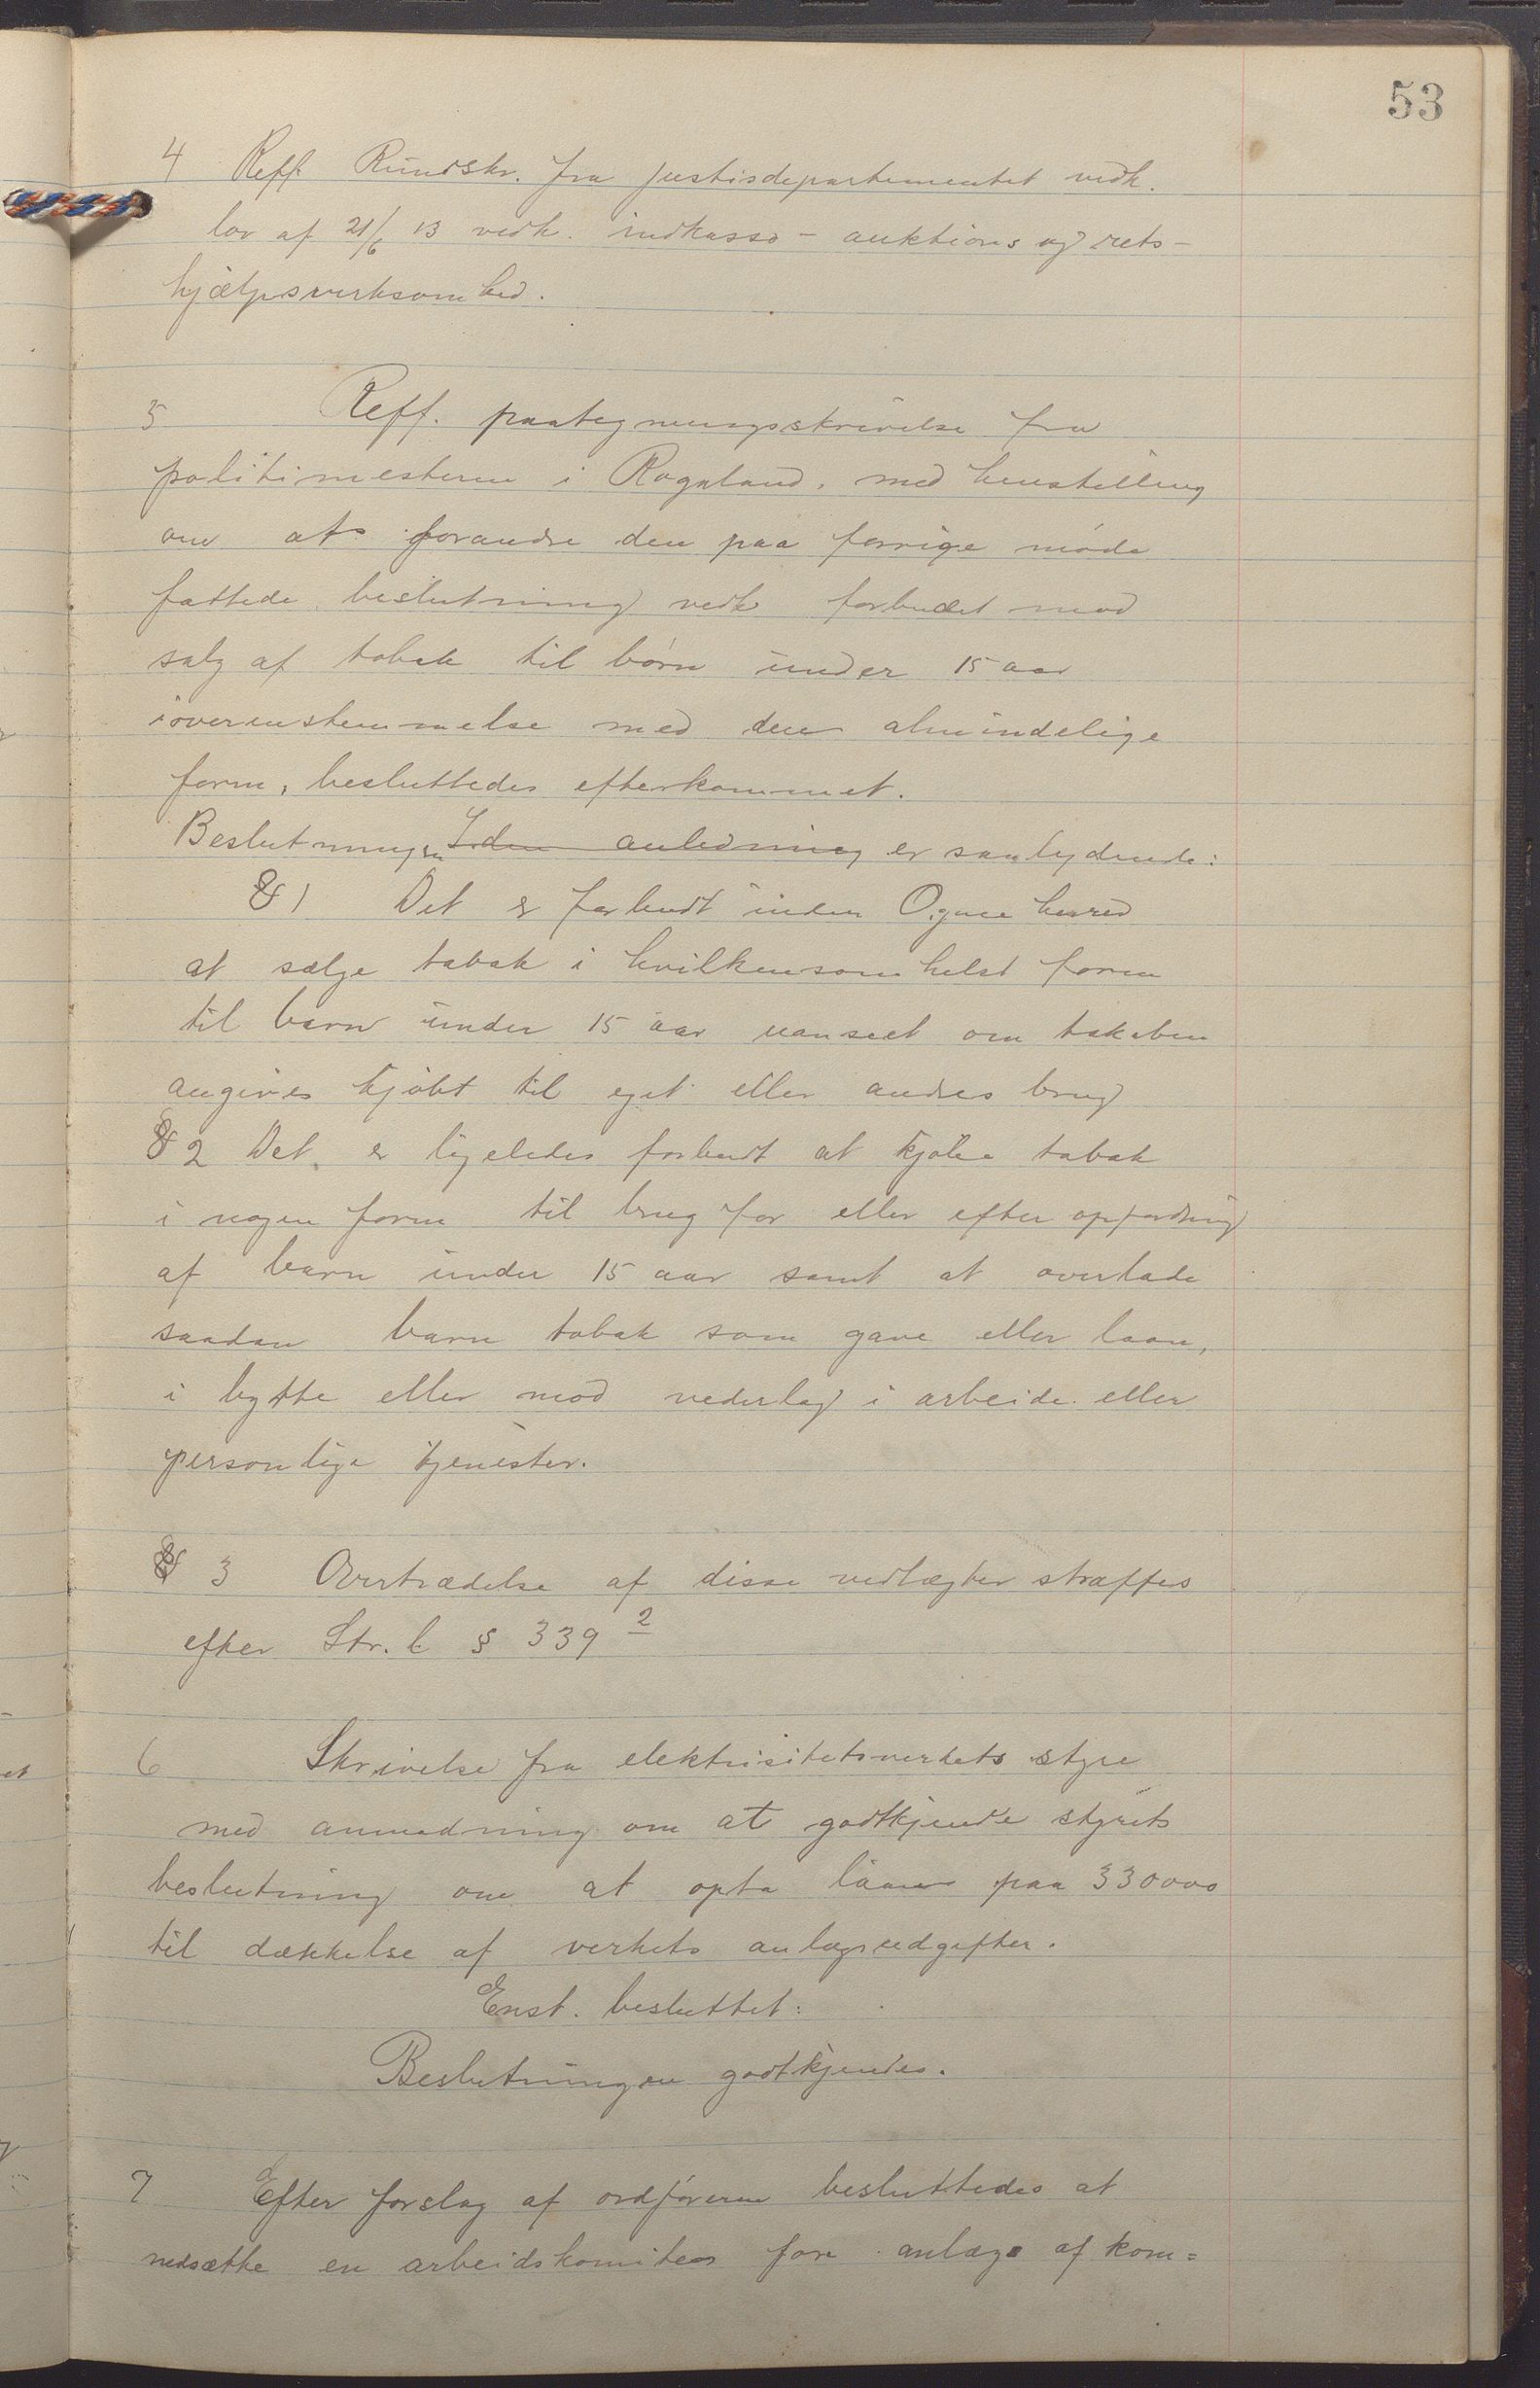 53
4 Reff. Rundskr. fra justisdepartementet vedk.
lov af 21/6 13 vedk. indkasso- auktions og rets-
hjælpsverksomhed.
5 Reff. paategningsskrivelse fra
politimesteren i Rogaland, med henstilling
om at forandre den paa forrige møde
fattede beslutning vedk forbudet mod
salg af tobak til børn under 15 aar
i overensstemmelse med den almindelige
form, besluttedes efterkommet.
Beslutningen I den anledning er saalydende:
§ 1 Det er forbudt inden Ogna herred
at sælge tobak i hvilkensomhelst form
til barn under 15 aar uanseet om tobaken
angives kjøbt til eget eller andres brug
§ 2 Det er ligeledes forbudt at kjøbe tobak
i nogen form til brug for eller efter opfordring
af barn under 15 aar samt at overlade
saadan barn tobak som gave eller laan,
i bytte eller mod vederlag i arbeide eller
personlige tjenester.
§ 3 Overtrædelse af disse vedtægter straffes
efter Str. l § 339 2
6 Skrivelse fra elektrisitetsverkets styre
med anmodning om at godkjende styrets
beslutning om at opta laan paa 330000
til dækkelse af verkets anlægsudgifter.
Enst. besluttet:
Beslutningen godtkjendes.
7 Efter forslag af ordføreren besluttedes at
nedsætte en arbeidskomitee for anlæg af kom=